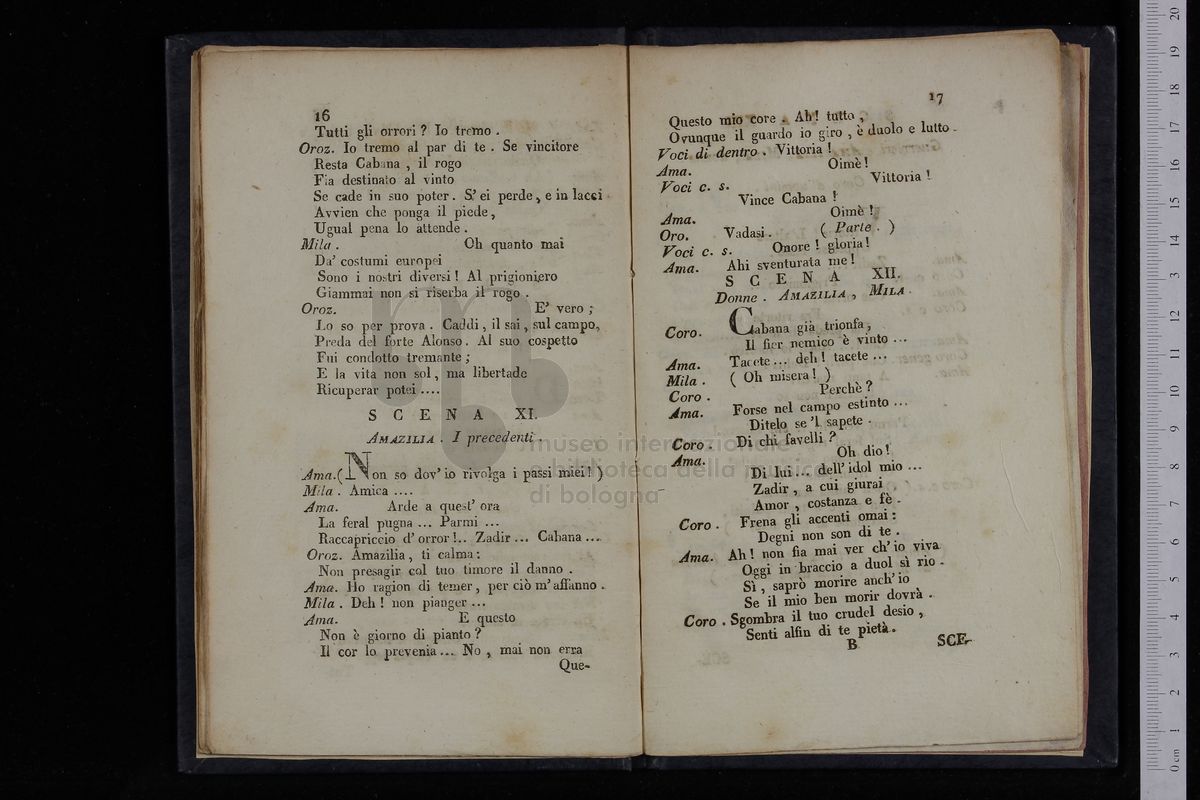 16
Tutti gli orrori ? Io tremo .
Oroz. Io tremo al par di te . Se vincitore
Resta Cabana , il rogo
Fia destinato al vinto
Se cade in suo poter . S' ei perde , e in lacci
Avvien che ponga il piede ,
Ugual pena lo attende .
Mila . Oh quanto mai
Da' costumi europei
Sono i nostri diversi ! Al prigioniero
Giammai non si riserba il rogo .
Oroz. E' vero ;
Lo so per prova . Caddi , il sai , sul campo,
Preda del forte Alonso . Al suo cospetto
Fui condotto tremante ;
E la vita non sol , ma libertade
Ricuperar potei ....
SCENA XI.
AMAZILIA . I precedenti .
Ama. ( Non so dov' io rivolga i passi miei ! )
Mila . Amica ....
Ama. Arde a quest' ora
La feral pugna ... Parmi ...
Raccapriccio d' orror !.. Zadir ... Cabana ....
Oroz. Amazilia , ti calma :
Non presagir col tuo timore il danno .
Ama. Ho ragion di temer , per ciò m' affanno .
Mila . Deh ! non pianger ...
Ama. E questo
Non è giorno di pianto ?
Il cor lo prevenia ... No , mai non erra
Que-
17
Questo mio core . Ah ! tutto ,
Ovunque il guardo io giro , è duolo e lutto .
Voci di dentro . Vittoria !
Ama. Oimè !
Voci c. s. Vittoria !
Vince Cabana !
Ama. Oimè !
Oro. Vadasi . ( Parte . )
Voci c. s. Onore ! gloria !
Ama. Ahi sventurata me !
SCENA XII.
Donne . AMAZILIA , MILA .
Coro. Cabana già trionfa ,
Il fier nemico è vinto ...
Ama. Tacete ... deh ! tacete ...
Mila . ( Oh misera ! )
Coro . Perchè ?
Ama. Forse nel campo estinto ...
Ditelo se 'l sapete .
Coro . Di chi favelli ?
Ama. Oh dio !
Di lui ... dell' idol mio ...
Zadir , a cui giurai
Amor , costanza e fè .
Coro . Frena gli accenti omai :
Degni non son di te .
Ama. Ah ! non fia mai ver ch' io viva
Oggi in braccio a duol sì rio .
Sì , saprò morire anch' io
Se il mio ben morir dovrà .
Coro . Sgombra il tuo crudel desio ,
Senti alfin di te pietà .
B SCE-
museo internazionale
e biblioteca della musica
di bologna
0 cm 1 2 3 4 5 6 7 8 9 10 11 12 13 14 15 16 17 18 19 20